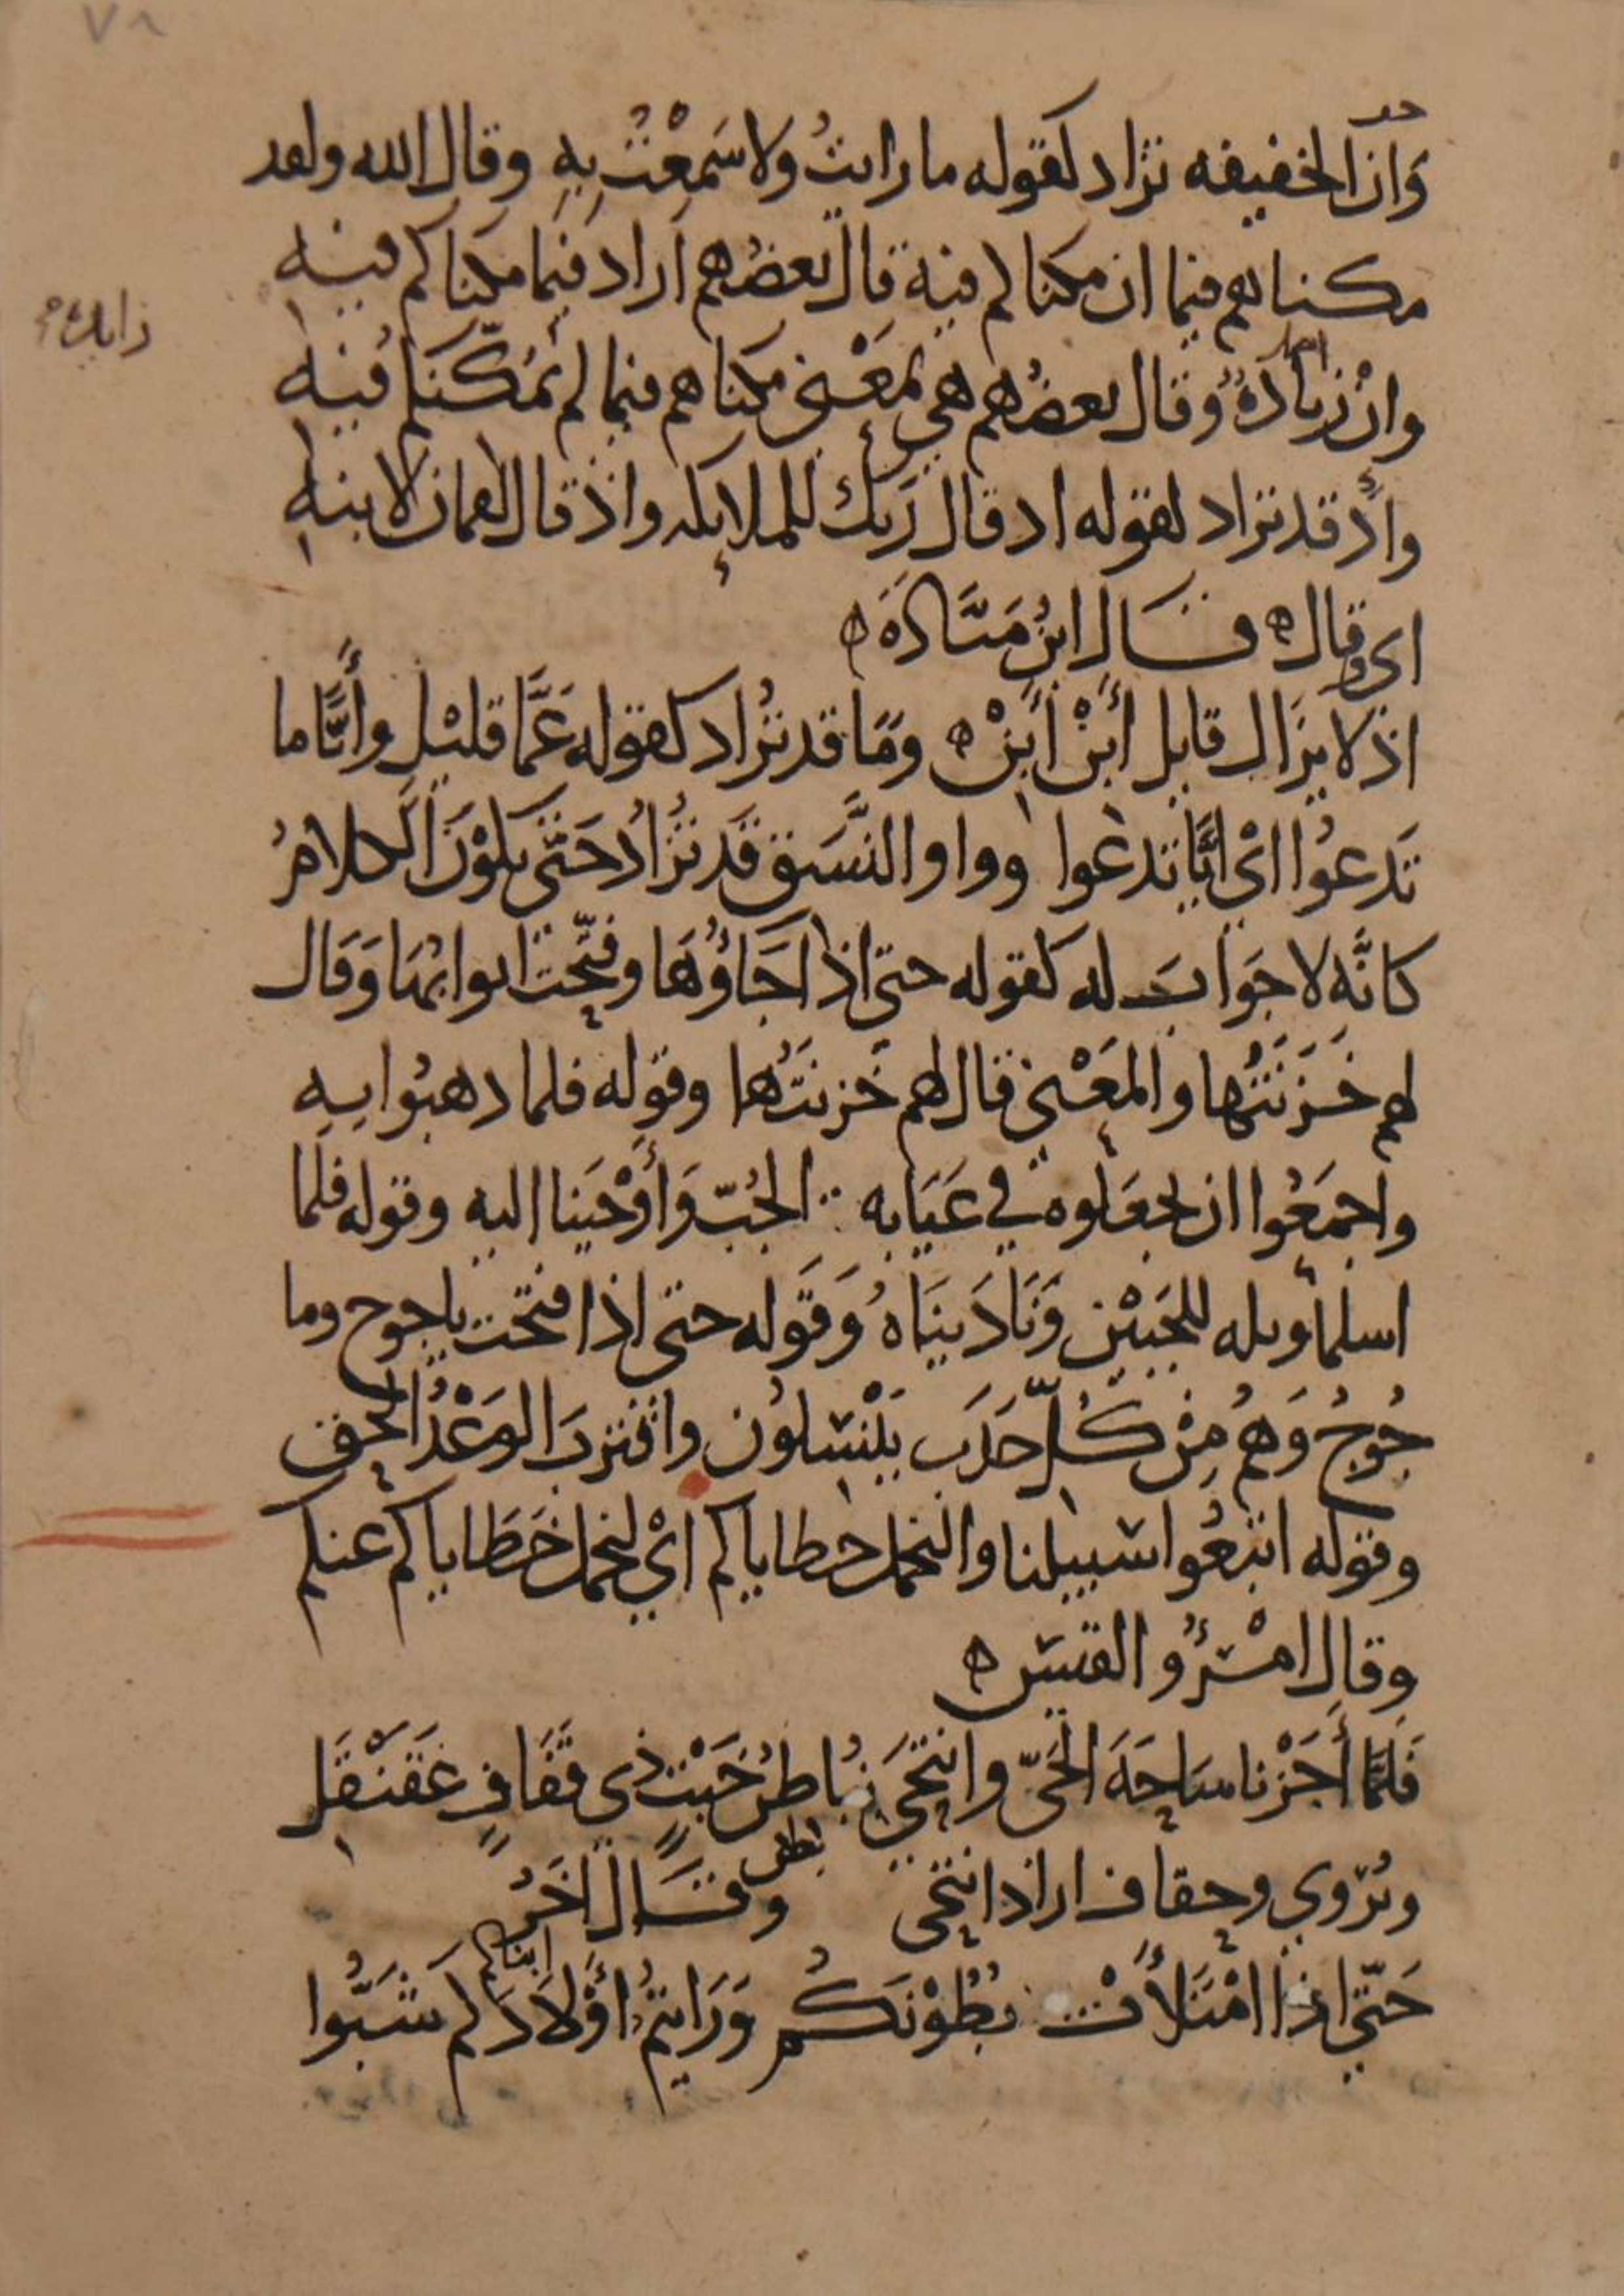 ٧٨
وَان الخفيفه تزاد كقوله ما رايتُ ولا سَمِعْتُ بِهِ وقال الله ولقد
مكناهم فيما ان مكناكم فيه قال بعضهم اراد فيما مكناكم فيه
وانْ زيادةٌ وقال بعضُهم هي بمَعْنى مكناهم فيما لم نمَكّنكم فيه
زايدة
واذ قد تزاد كقوله اذ قال رَبك للملايكه واذ قال لقمان لابنه
اي وقال ه قال ابنُ مَيَّادَةَ ه
اذ لا يزَال قايل أَبِنْ أَبِنْ ه ومَا قد تزُاد كقوله عَمَّا قليْل وأَيَّاما
تَدعُوا ايْ ايَّا تدعوا وواو النَّسَق قَد تزُادُ حَتّى يكوْن الكلامُ
كانَّه لا جوَابَ له كقوله حتى اذا جَاؤُهَا وفتّحت ابوابُهَا وَقَال
لهم خَزَنَتُها والمعْنى قال لهم خَزنَتُها وقوله فلما ذهبُوا بِهِ
واجمَعُوا ان يجعَلوه في غيَابه الجُبّ وَأَوْحَيَنا اليه وقوله فلَما
اسلما وتله للجَبيْن وَنَادَينَاهُ وَقَوله حتى اذا فتحت ياجوج وما
جُوجُ وَهُم مِنْ كُلّ حَدَب يَنْسِلوُن واقترَبَ الوَعْدُ الحَق
وقوله اتبعُوا سَبيلنا والنحمل خطاياكم ايْ لنحمل خطاياكم عنكم
وقال امْرُؤُ القيس ه
فَلَمَّا أَجَزْنا سَاحَةَ الحَيّ وانتَحَى بُاطنُ خَبْت ذي قفَافٍ عَقَنْقَلِ
بطن
ويُرْوي وحقاف اراد انتحى وقَال آخَرُ
ابناكم
حَتّى اذا امْتَلأَتْ بُطُوْنَكُم وَرَايتُم أَوْلادَكم شَبُّوا